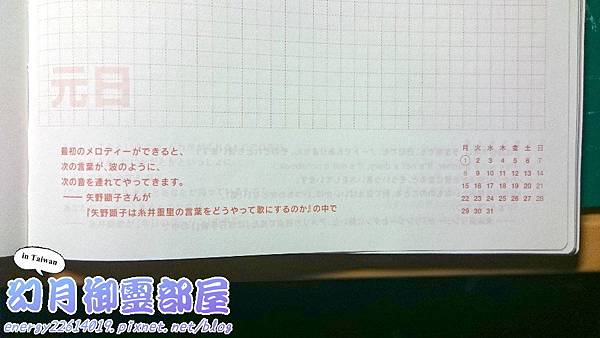 元日
最初のメロディーができると、
次の言葉が、波のように、
次の音を連れてやってきます。
―― 矢野顕子さんが
『矢野顕子は糸井重里の言葉をどうやって歌にするのか』の中で
月 火 水 木 金 土 日
1 2 3 4 5 6 7
8 9 10 11 12 13 14
15 16 17 18 19 20 21
22 23 24 25 26 27 28
29 30 31
in Taiwan
幻月御靈部屋
energy22614019.pixnet.net/blog